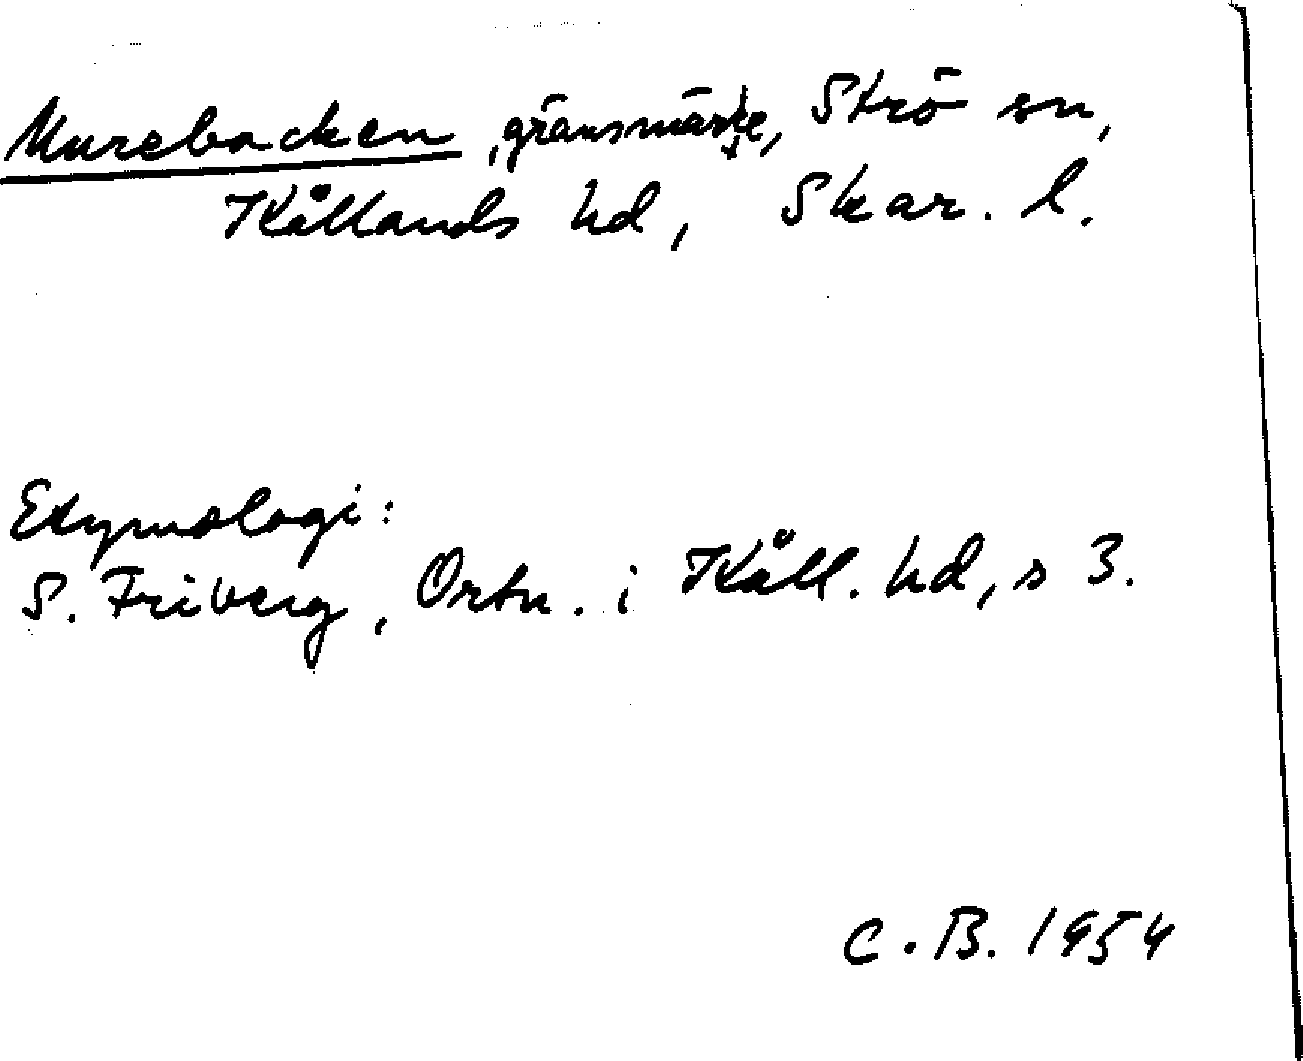 Murebacken, gränsmärke, Strö sn,
Kållands hd, Skar. l.
Etymologi:
S. Friberg, Ortn. i Kåll. hd, s 3.
C. B. 1954